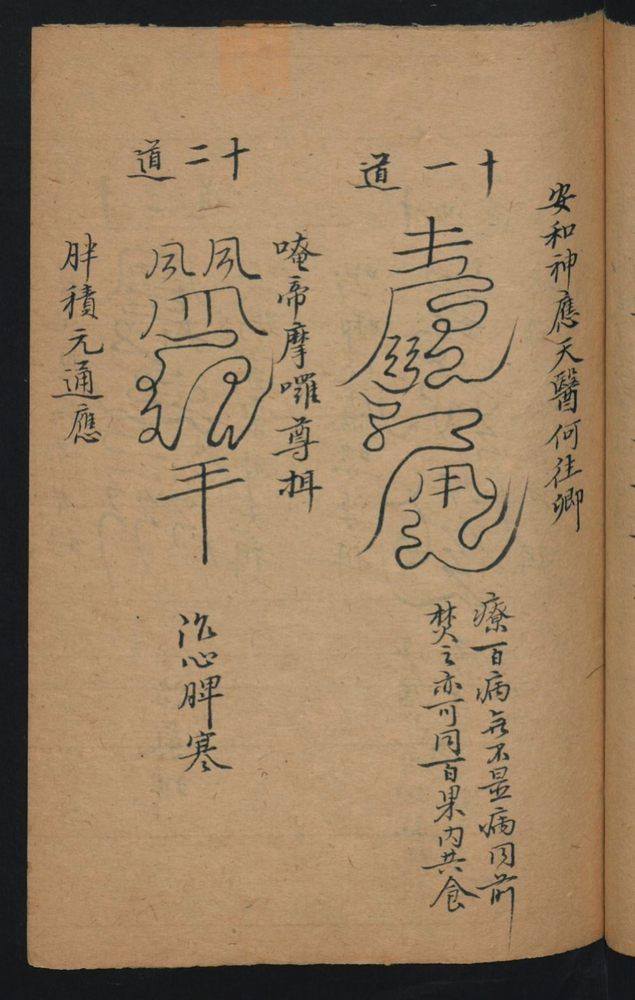 安和神應天醫何往卿
十一道
療百病無不是病同前
焚之亦可同百果内共食
唵帝摩囉尊楫
十二道
治心脾寒
胖積元通應